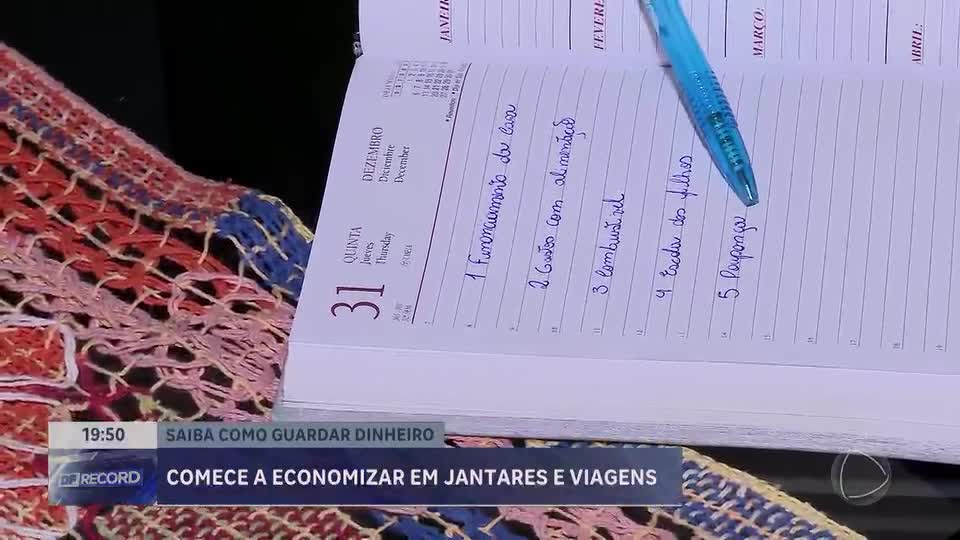 JANEIRO:
FEVEREI
MARÇO:
ABRIL:
DEZEMBRO
Diciembre
December
31
QUINTA
Jueves
Thursday
1 Funcionamento da casa
2 Gastos com alimentação
3 Combustível
4 Escolas dos filhos
5 Poupança
7
8
9
10
11
12
13
14
15
16
17
18
19
19:50
SAIBA COMO GUARDAR DINHEIRO
DF RECORD
COMECE A ECONOMIZAR EM JANTARES E VIAGENS